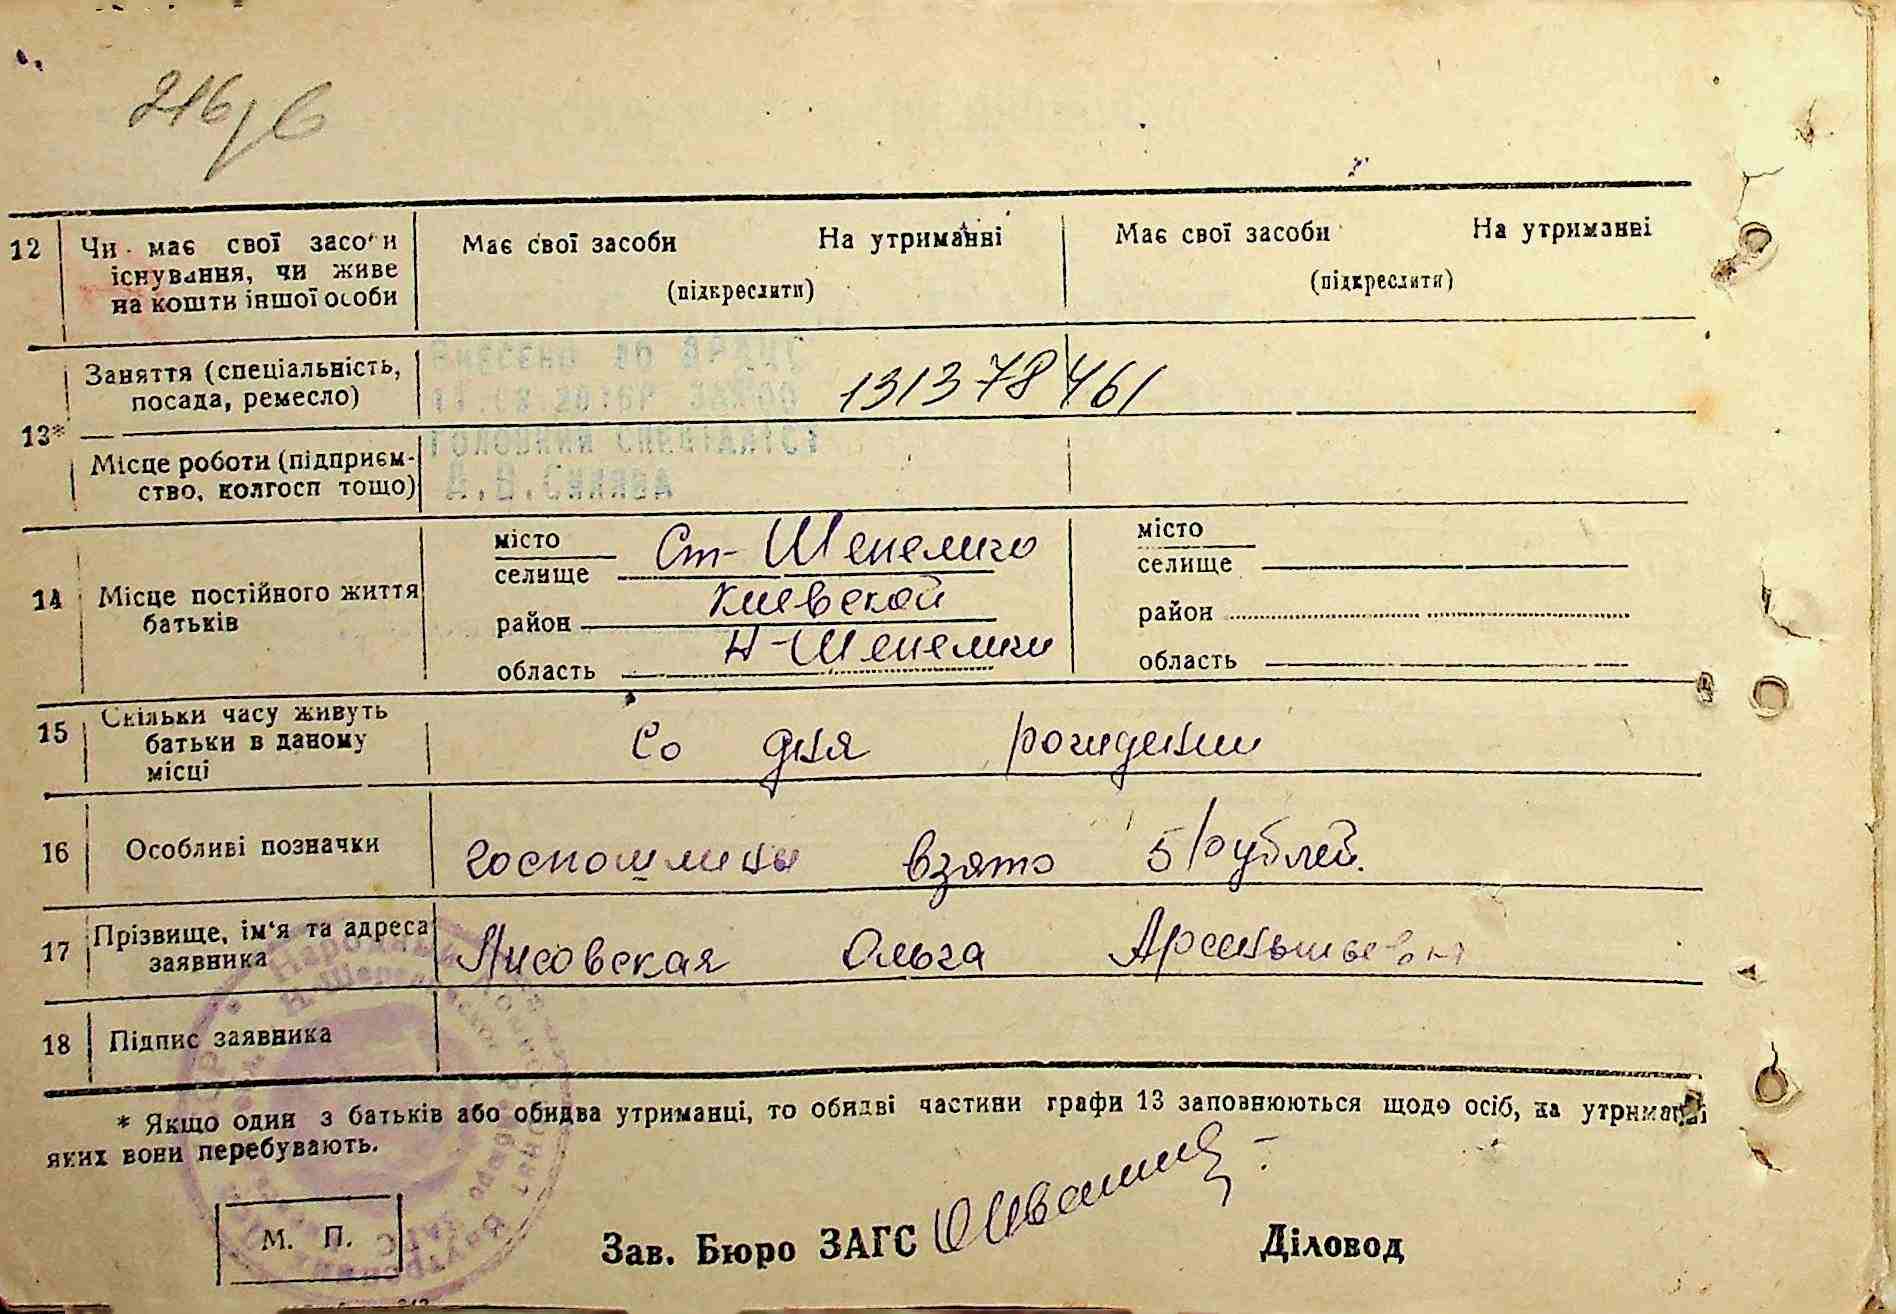 216/6
12 Чи має свої засоби Має свої засоби На утриманні Має свої засоби На утриманні
існування, чи живе (підкреслити) (підкреслити)
на кошти іншої особи
Внесено до
Заняття (спеціальність, 131378461
посада, ремесло)
13*
головний спеціаліст
Місце роботи (підприєм-
ство, колгосп тощо)
місто Ст-Шепеличо місто
селище селище
14 Місце постійного життя Киевской
батьків район район
Н-Шепеличи
область область
15 Скільки часу живуть Со дня рождения
батьки в даному
місці
16 Особливі позначки госпошлины взято 5 рублей.
17 Прізвище, ім'я та адреса Лисовская Ольга
заявника
18 Підпис заявника
* Якщо один з батьків або обидва утриманці, то обидві частини графи 13 заповнюються щодо осіб, на утриманні
яких вони перебувають.
М. П.
Зав. Бюро ЗАГС Діловод